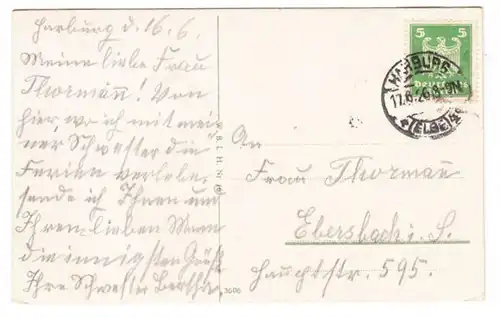 Harburg d. 16.6.
Meine liebe Frau
Thormann! Von
hier wo ich mit mei-
ner Schwester die
Ferien verlebe,
sende ich Ihnen und
Ihrem lieben Mann
die innigsten Grüße
Ihre Schwester Bertha
An
Frau Thormann
Ebersbach i. S.
Hauptstr. 595.
5 5
HARBURG
17.6.26.8-9N
(ELBE)
3606